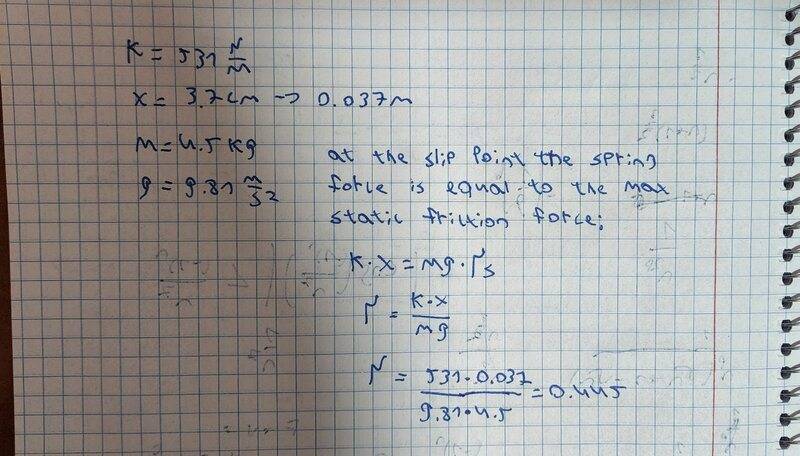 K = 531 N/m
x = 3.7cm → 0.037m
m = 4.5 kg
g = 9.81 m/s2
at the slip point the spring
force is equal to the max
static friction force:
K·x = mg·μs
μ = K·x/mg
μ = 531·0.037/9.81·4.5 = 0.445